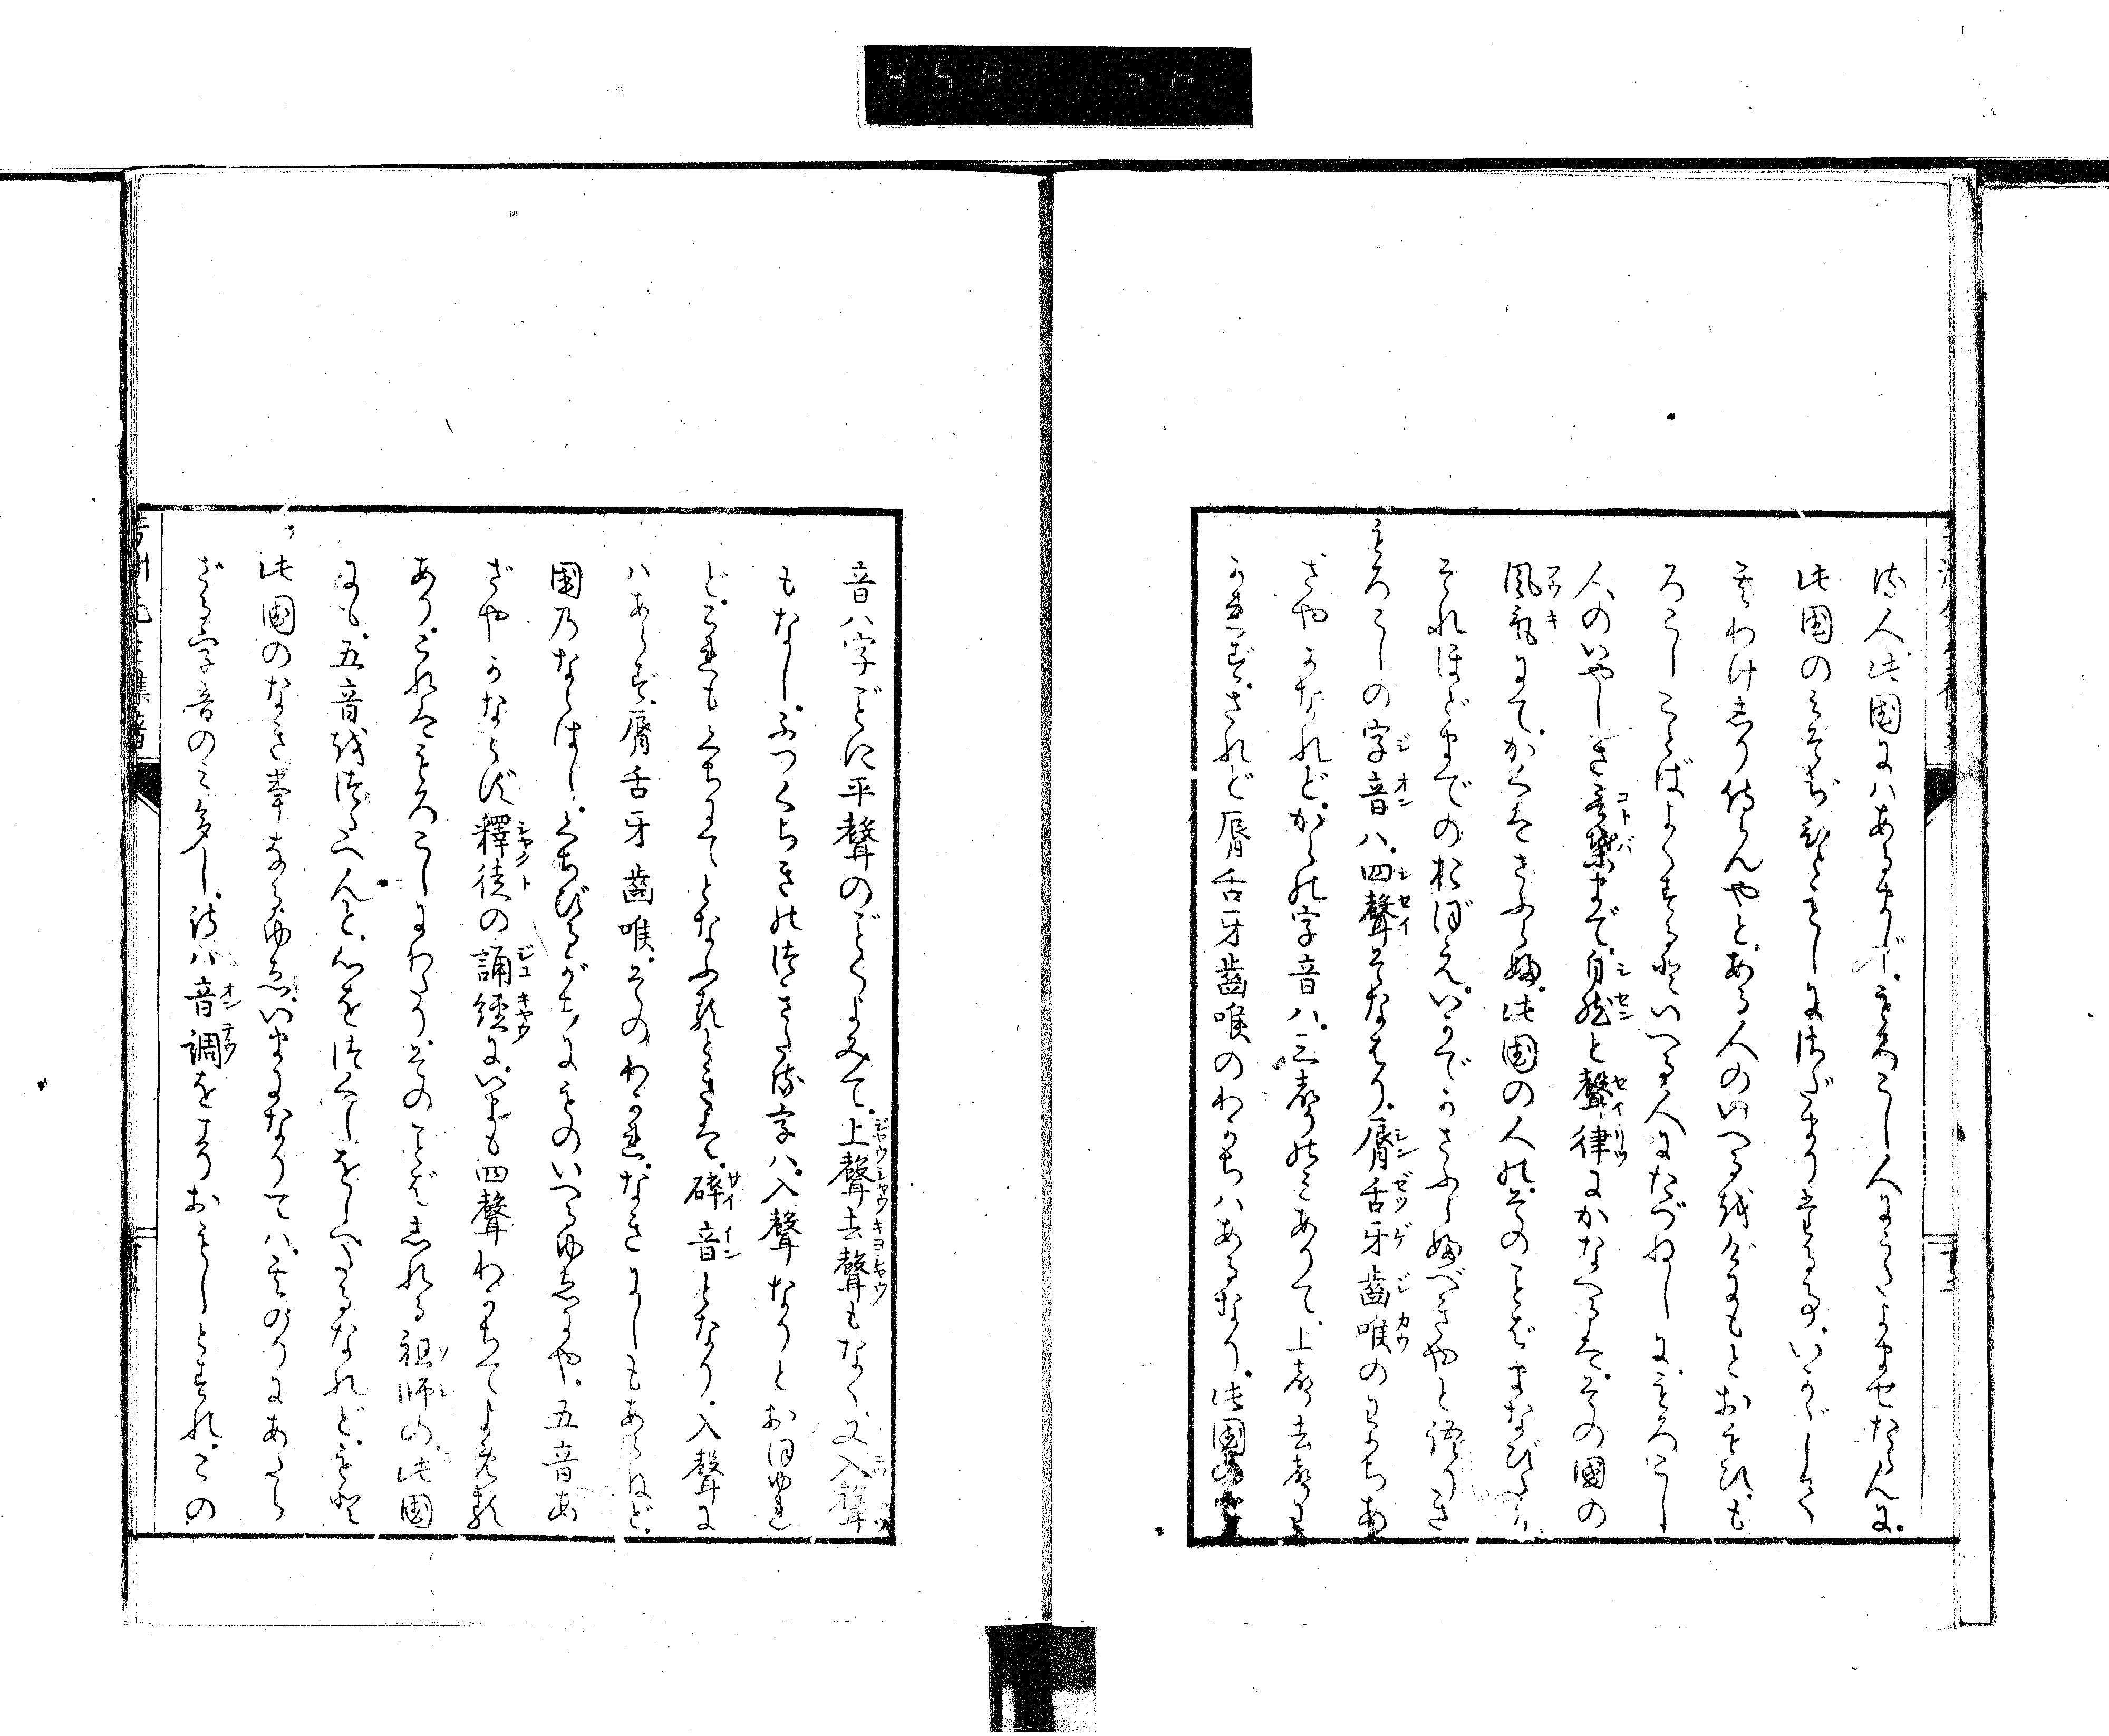 る人此国にハあるまじ。もろこし人にうたよませたらんに。
此国のみそぢひともじにはだまりたる事。いかゞしたる
そわけしり侍らんやと。ある人のいへるをげにもとおもひ。も
ろこしことばよくするといへる人にたづねしに。もろこし
人のいやしき言葉まで。自然と聲律にかなへるは。その國の
風気にて。かくはさふらふ。此國の人の。そのことばまなびたらバ。
それほどまでのおぼえ。いかでかさふらふべきやと語りき
もろこしの字音ハ。四聲そなはり。脣舌牙齒喉のわかちあ
ざやかなれど。からの字音ハ。三聲のみありて。上聲去聲わ
かれず。されど脣舌牙齒喉のわかちハあるなり。此国の字
音ハ字ごとに平聲のごとくよみて。上聲去聲もなく。又入聲
もなし。ふつくちきのつきたる字ハ。入聲なりとおぼゆれ
ど。これもくちにてとなふるときは。碎音となり。入聲に
ハあらず。脣舌牙齒喉。そのわかれ。なきにしもあらねど。
國乃ならはし。くちびるがちにものいへるゆゑにや。五音あ
ざやかならず釋徒の誦経に。いまも四聲わかちてよめる
あり。これはもろこしにわたり。そのことばしれる祖師の。此國
にも。五音をつたへんと。心をつくしをしへたるなれど。もと
此國のなき事なるゆゑ。いまになりてハ。そのりにあたら
ざる字音のみ多し。詩ハ音調をこそおもしとすれ。この